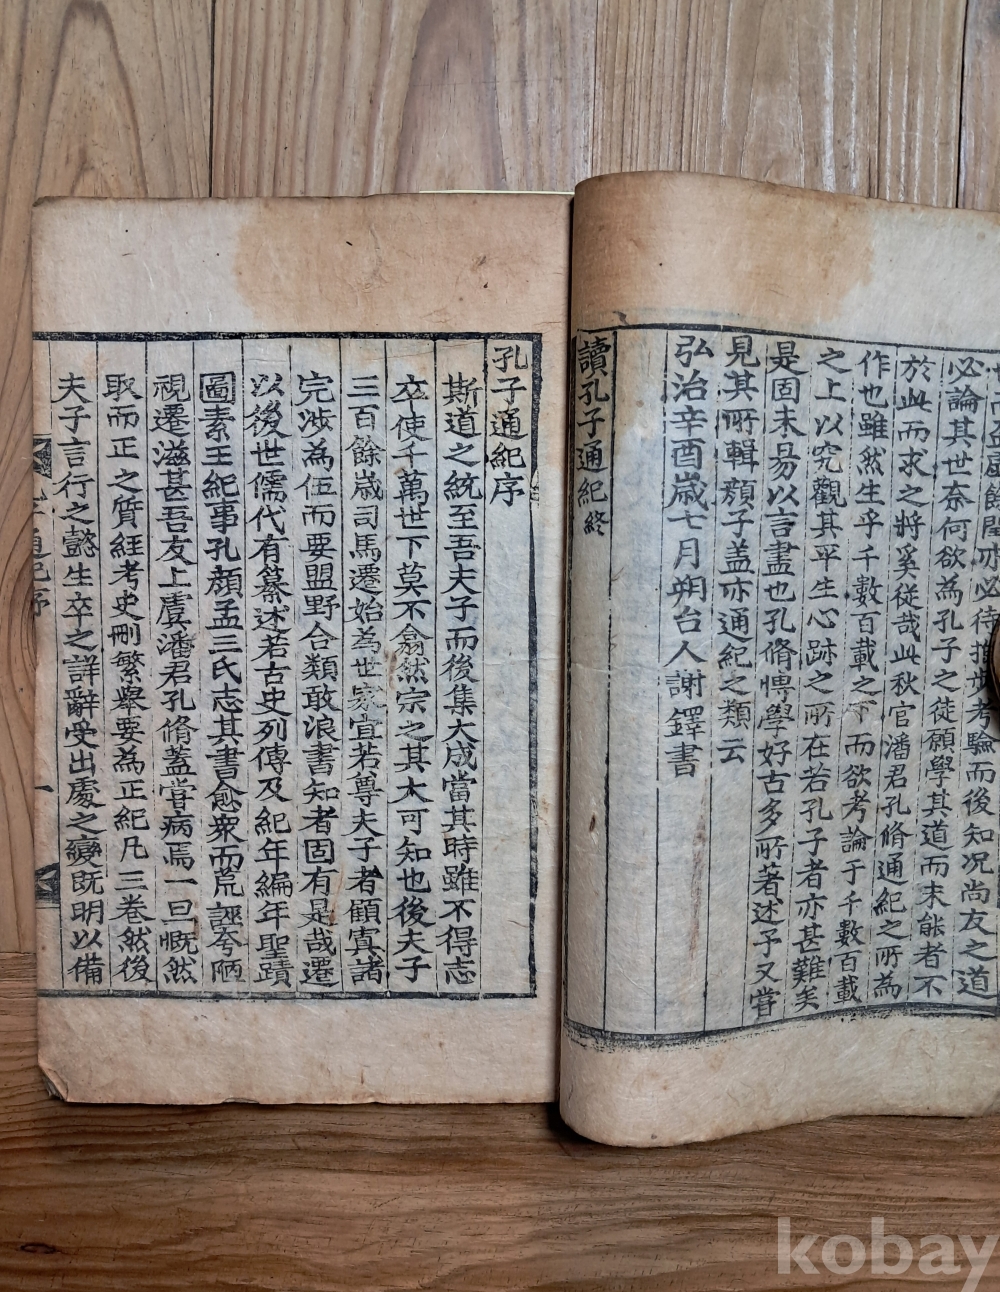 必論其世奈何欲為孔子之徒願學其道而未能者不
於此而求之將奚從哉此秋官潘君孔脩通紀之所為
作也雖然生乎千數百載之下而欲考論于千數百載
之上以究觀其平生心跡之所在若孔子者亦甚難矣
是固未易以言盡也孔脩愽學好古多所著述予又甞
見其所輯顔子盖亦通紀之類云
弘治辛酉歲七月朔台人謝鐸書
讀孔子通紀終
孔子通紀序
斯道之統至吾夫子而後集大成當其時雖不得志
卒使千萬世下莫不翕然宗之其大可知也後夫子
三百餘歲司馬遷始為世家宜若尊夫子者顧寘諸
完涉為伍而要盟野合類敢浪書知者固有是哉遷
以後世儒代有纂述若古史列傳及紀年編年聖蹟
圖素王紀事孔顔孟三氏志其書愈衆而荒誣夸陋
視遷滋甚吾友上虞潘君孔脩蓋甞病焉一旦慨然
取而正之質經考史刪繁舉要為正紀凡三卷然後
夫子言行之懿生卒之詳辭受出處之變既明以備
通紀序
一
kobay